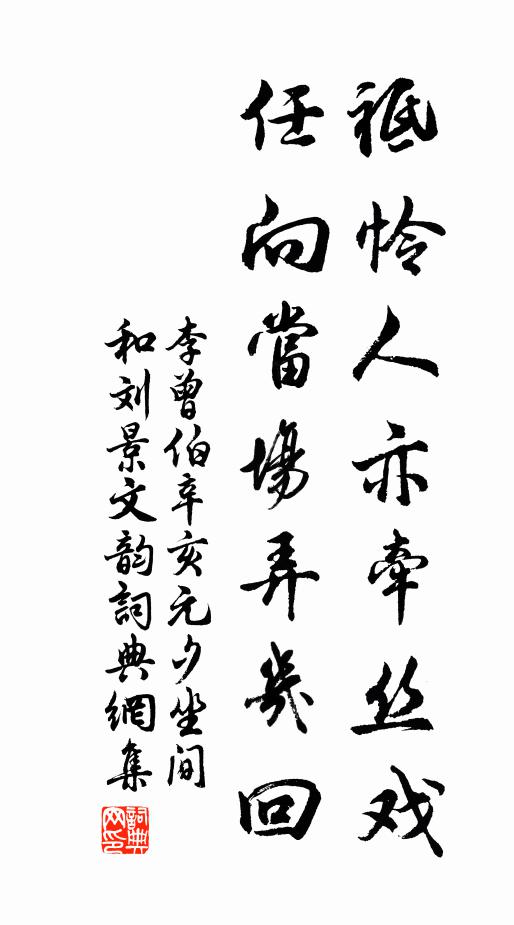 祗怜人亦牵丝戏
任向當場弄幾回
李曾伯辛亥元夕坐间
和刘景文韵詞典網集
詞典網印